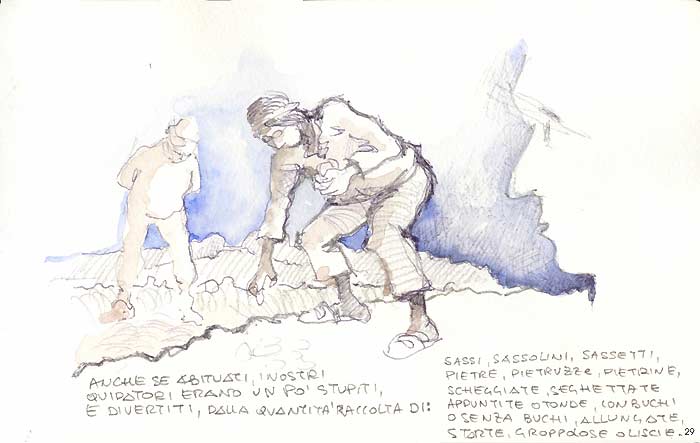 ANCHE SE ABITUATI, I NOSTRI
GUIDATORI ERANO UN PO' STUPITI,
E DIVERTITI, DALLA QUANTITA' RACCOLTA DI:
SASSI, SASSOLINI, SASSETTI,
PIETRE, PIETRUZZE, PIETRINE,
SCHEGGIATE, SEGHETTATE
APPUNTITE O TONDE, CON BUCHI
O SENZA BUCHI, ALLUNGATE,
STORTE, GROPPOLOSE O LISCIE. 29